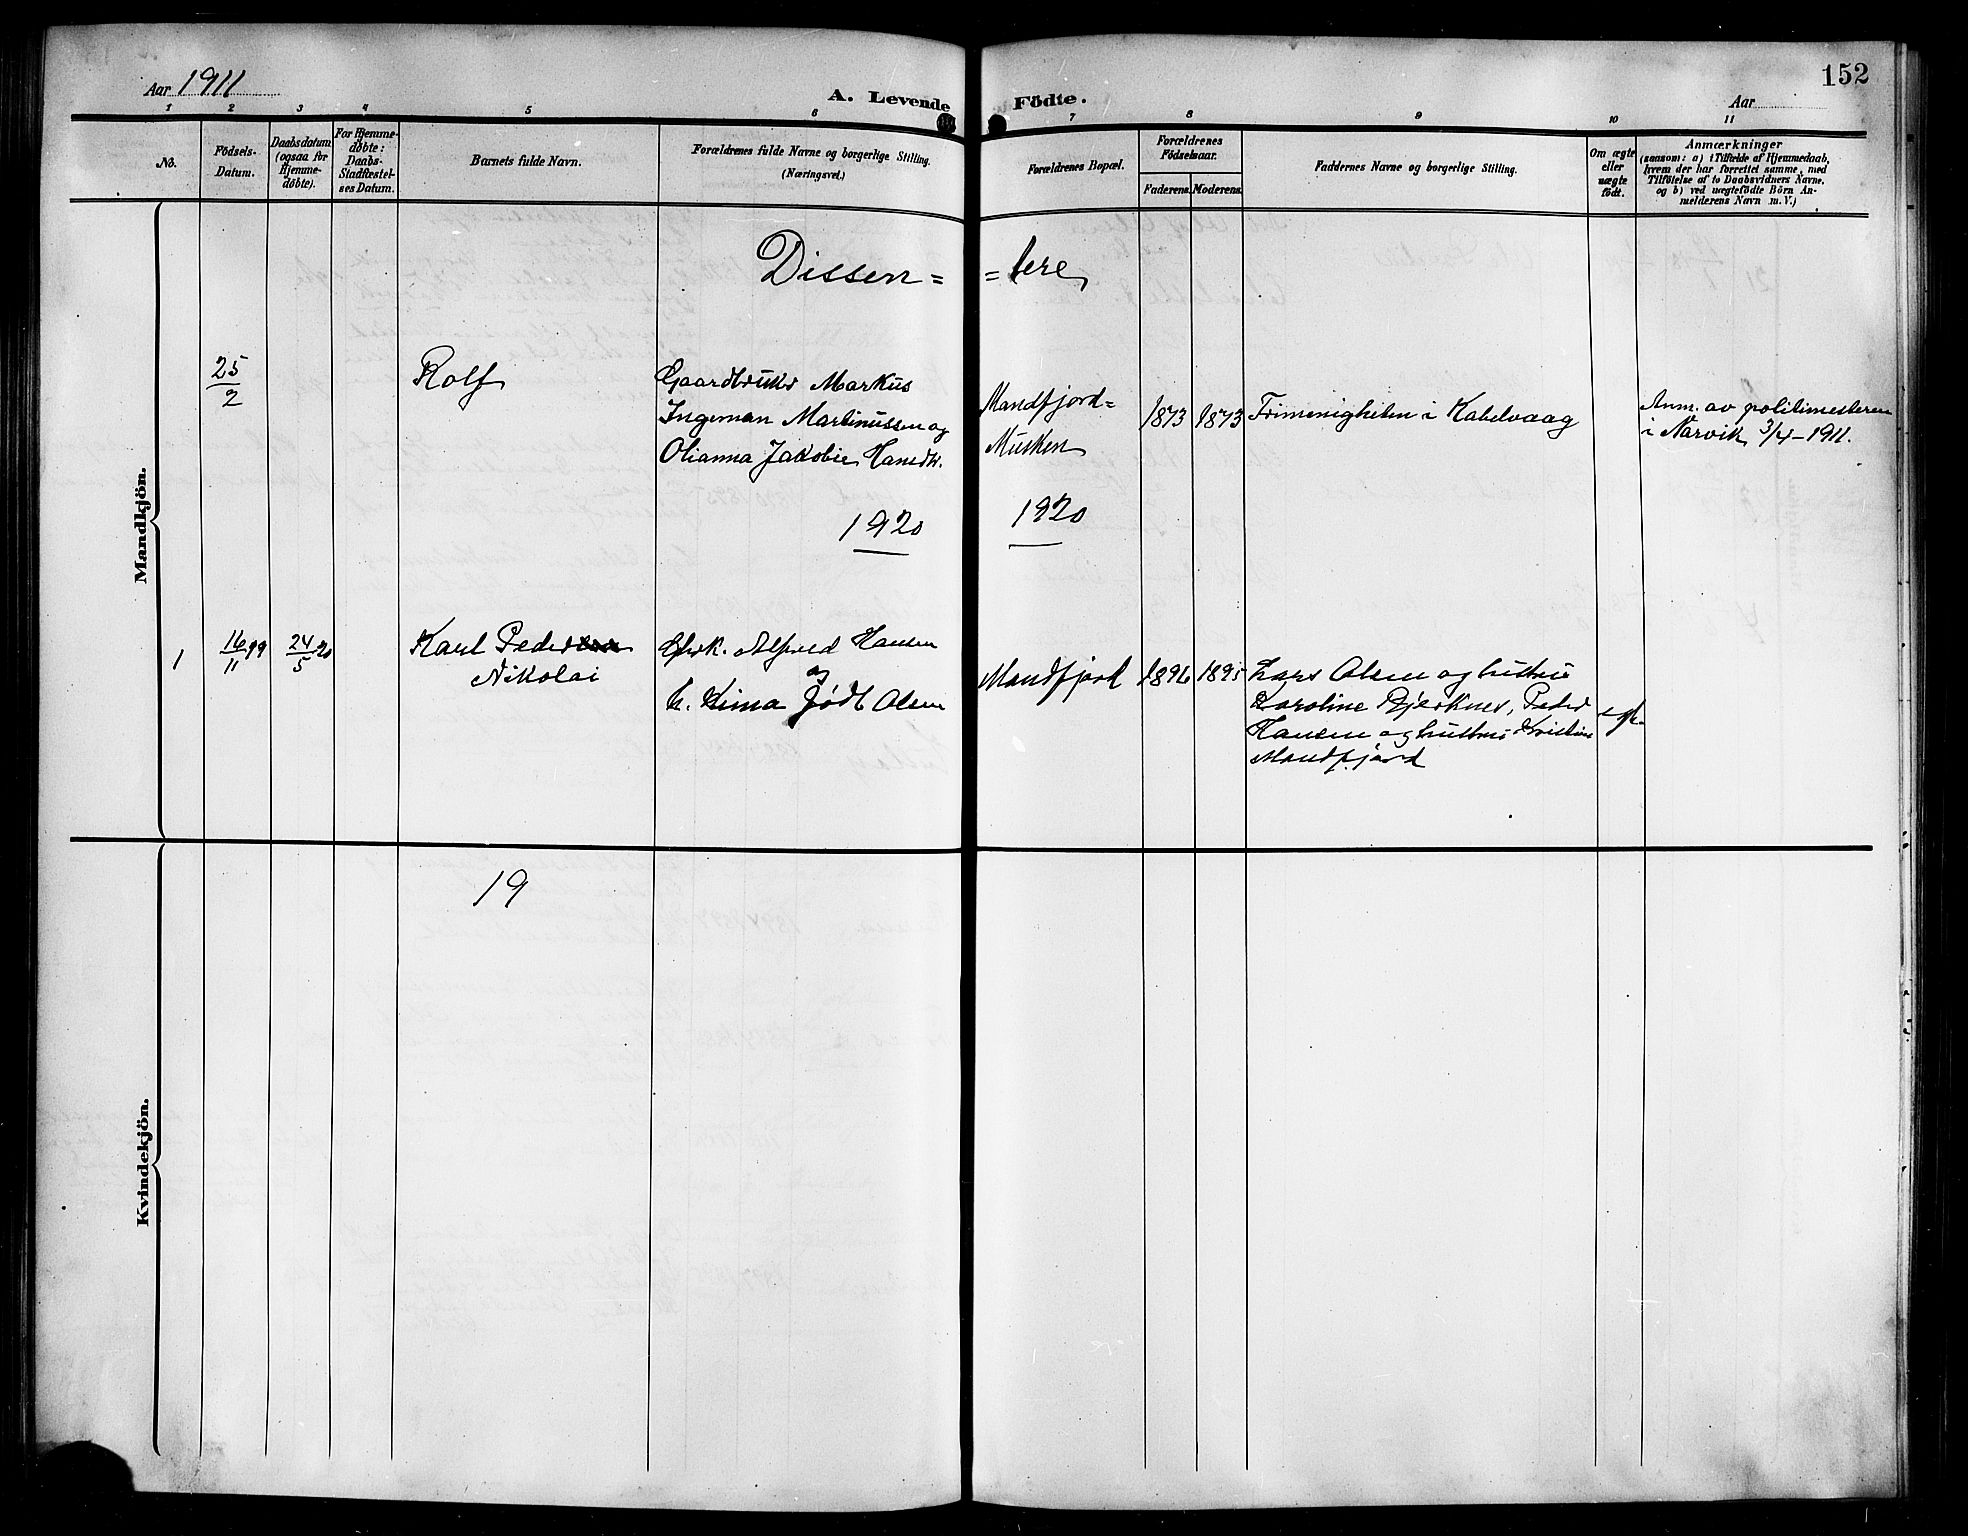 152
Aar 1911
A. Levende Födte.
Aar
1 2 3 4 5 6 7 8 9 10 11
No.
Födsels-
Datum.
Daabsdatum
(ogsaa for
Hjemme-
döbte).
For Hjemme-
döbte:
Daabs-
Stadfæstel-
ses Datum.
Barnets fulde Navn.
Forældrenes fulde Navne og borgerlige Stilling.
(Næringsvei.)
Forældrenes Bopæl.
Forældrenes
Födselsaar.
Faderens. Moderens.
Faddernes Navne og borgerlige Stilling.
Om ægte
eller
uægte
födt.
Anmærkninger
(saasom: a) i Tilfælde af Hjemmedaab,
hvem der har forrettet samme, med
Tilföielse af to Daabsvidners Navne,
og b) ved uægtefödte Börn An-
melderens Navn m. V.)
Mandkjön.
Dissen= =tere
25/2
Rolf
Gaardbruker Markus
Ingeman Martinussen og
Olianna Jakobie Hansdtr.
Mandfjord=
Musken
1873 1873
Frimenigheten i Kabelvaag
Anm. av politimesteren
i Narvik 3/4-1911.
1920 1920
1
16/11 19
24/5 20
Karl Peder
Nikolai
Alfred Hansen
og
h. født Olsen
Mandfjord
1896 1895
Lars Olsen og hustru
Karoline Bjerknes, Peder
Hansen og hustru Kristine
Mandfjord
Kvindekjön.
19